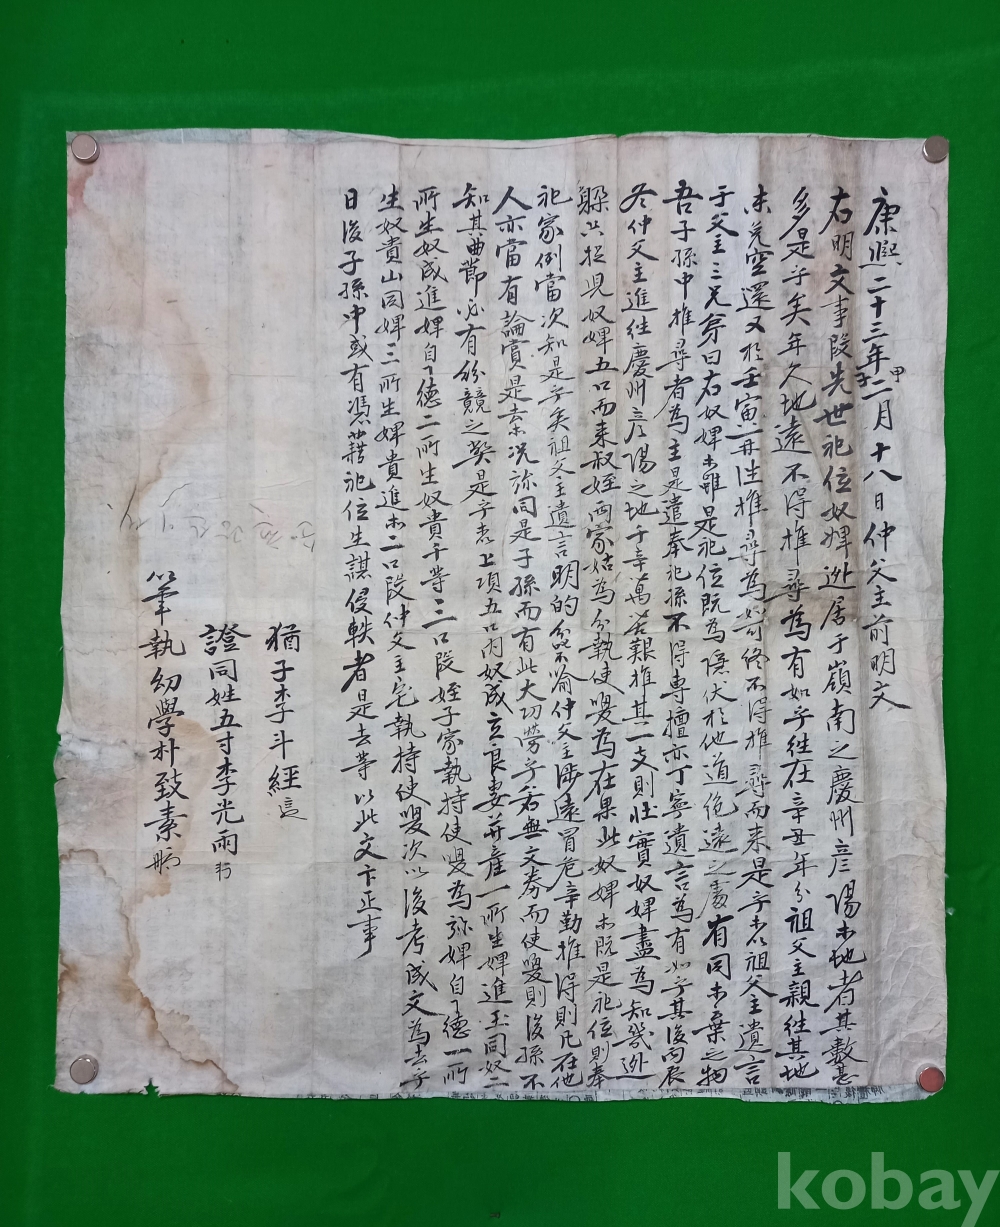 康熙二十三年甲子二月十八日仲父主前明文
右明文事段先世祀位奴婢逃居于嶺南之慶州彦陽等地者其數甚
多是乎矣年久地遠不得推尋為有如乎往在辛丑年分祖父主親往其地
未免空還又於壬寅再往推尋為 終不得推尋而来是乎等以祖父主遺言
于父主三兄弟曰右奴婢等雖是祀位既為隱伏於他道絶遠之處有同等棄之物
吾子孫中推尋者為主是遣奉祀孫不得專擅亦丁寧遺言為有如乎其後丙辰
冬仲父主進往慶州彦陽之地千辛萬苦艱推其一支則壯實奴婢盡為知幾逃
躱只捉児奴婢五口而来叔姪两家姑為分執使喚為在果此奴婢等既是祀位則奉
祀家例當次知是乎矣祖父主遺言明的 不喻仲父主涉遠冒危辛勤推得則凡在他
人亦當有論賞是去 况旀同是子孫而有此大功勞乎若無文券而使喚則後孫不
知其曲節必有紛競之獘是乎 上項五口内奴成立良妻并産一所生婢進玉同奴二
所生奴成進婢自德二所生奴貴千等三口段姪子家執持使喚為旀婢自德一所
生奴貴山同婢三所生婢貴進等二口段仲父主宅執持使喚次以後考成文為去乎
日後子孫中或有憑藉祀位生謀侵軼者是去等以此文卞正事
猶子李斗經
證同姓五寸李光雨
筆執幼學朴致素
kobay